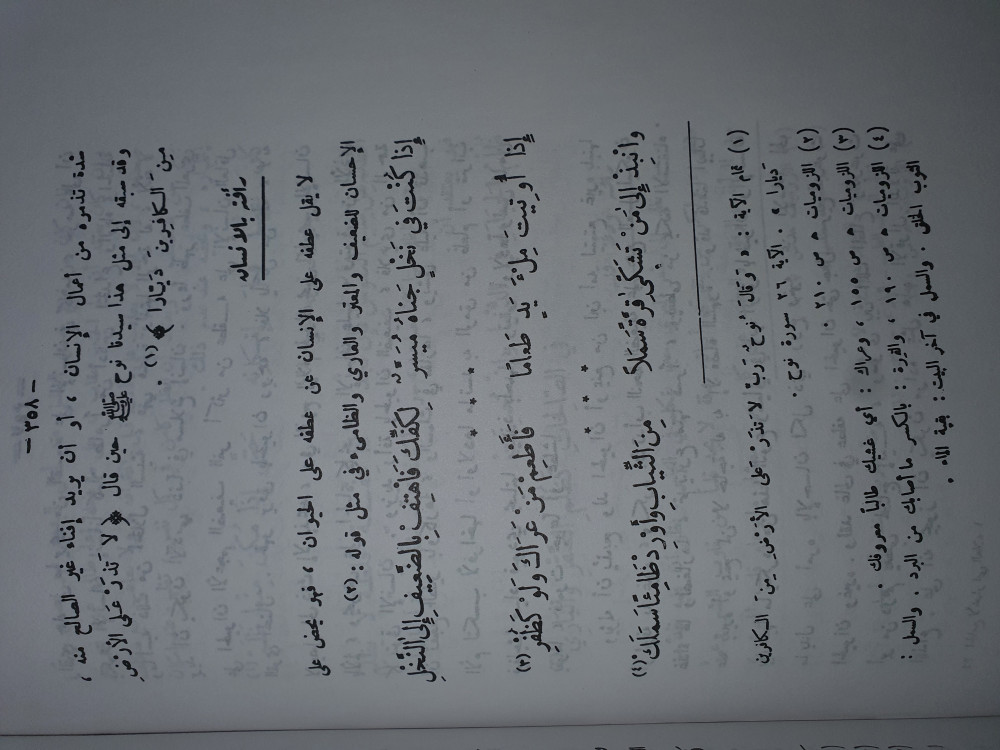 – ٣٥٨ –
ضدة تذمره من أعمال الإنسان ، أو أن يريد إفناء غير الصالح منه ،
وقد سبقه إلى مثل هذا سيدنا نوح ﷺ حين قال ﴿ لَا تَذَرْ عَلَى الْأَرْضِ
مِنَ الْكَافِرِينَ دَيَّارًا ﴾ (١) .
رأفته بالانسان
لا يقل عطفه على الإنسان عن عطفه على الحيوان ، فهو يحض على
الإحسان للضعيف والمعتر والعاري والظامىء في مثل قوله : (٢)
إِذَا كُنْتَ فِي نَخْلٍ جَنَاهُ مُيَسَّرٌ لِكَفِّكَ فَاهْتِفْ بِالضَّعِيفِ إِلَى النَّخْلِ
* * *
إِذَا أُوتِيتَ مِلْءَ يَدٍ طَعَامًا فَأَطْعِمْ مَنْ عَرَاكَ وَلَوْ كَظُفْرِ (٣)
* * *
وَانْبِذْ إِلَى مَنْ تَشَكَّى قِرَّةً سَمَلًا مِنَ الثِّيَابِ وَأَوْرِدْ ظَامِئًا سَمَلَكْ (٤)
(١) تمام الآية : « وَقَالَ نُوحٌ رَبِّ لَا تَذَرْ عَلَى الْأَرْضِ مِنَ الْكَافِرِينَ
دَيَّارًا » . الآية ٢٦ سورة نوح .
(٢) اللزوميات ص ٢١٠ .
(٣) اللزوميات ص ١٥٥ ، وعراك : أي غشيك طالباً معروفك .
(٤) اللزوميات ص ١٩٠ ، والقرة : بالكسر ما أصابك من البرد . والسمل :
الثوب الخلق . والسمل في آخر البيت : بقية الماء .